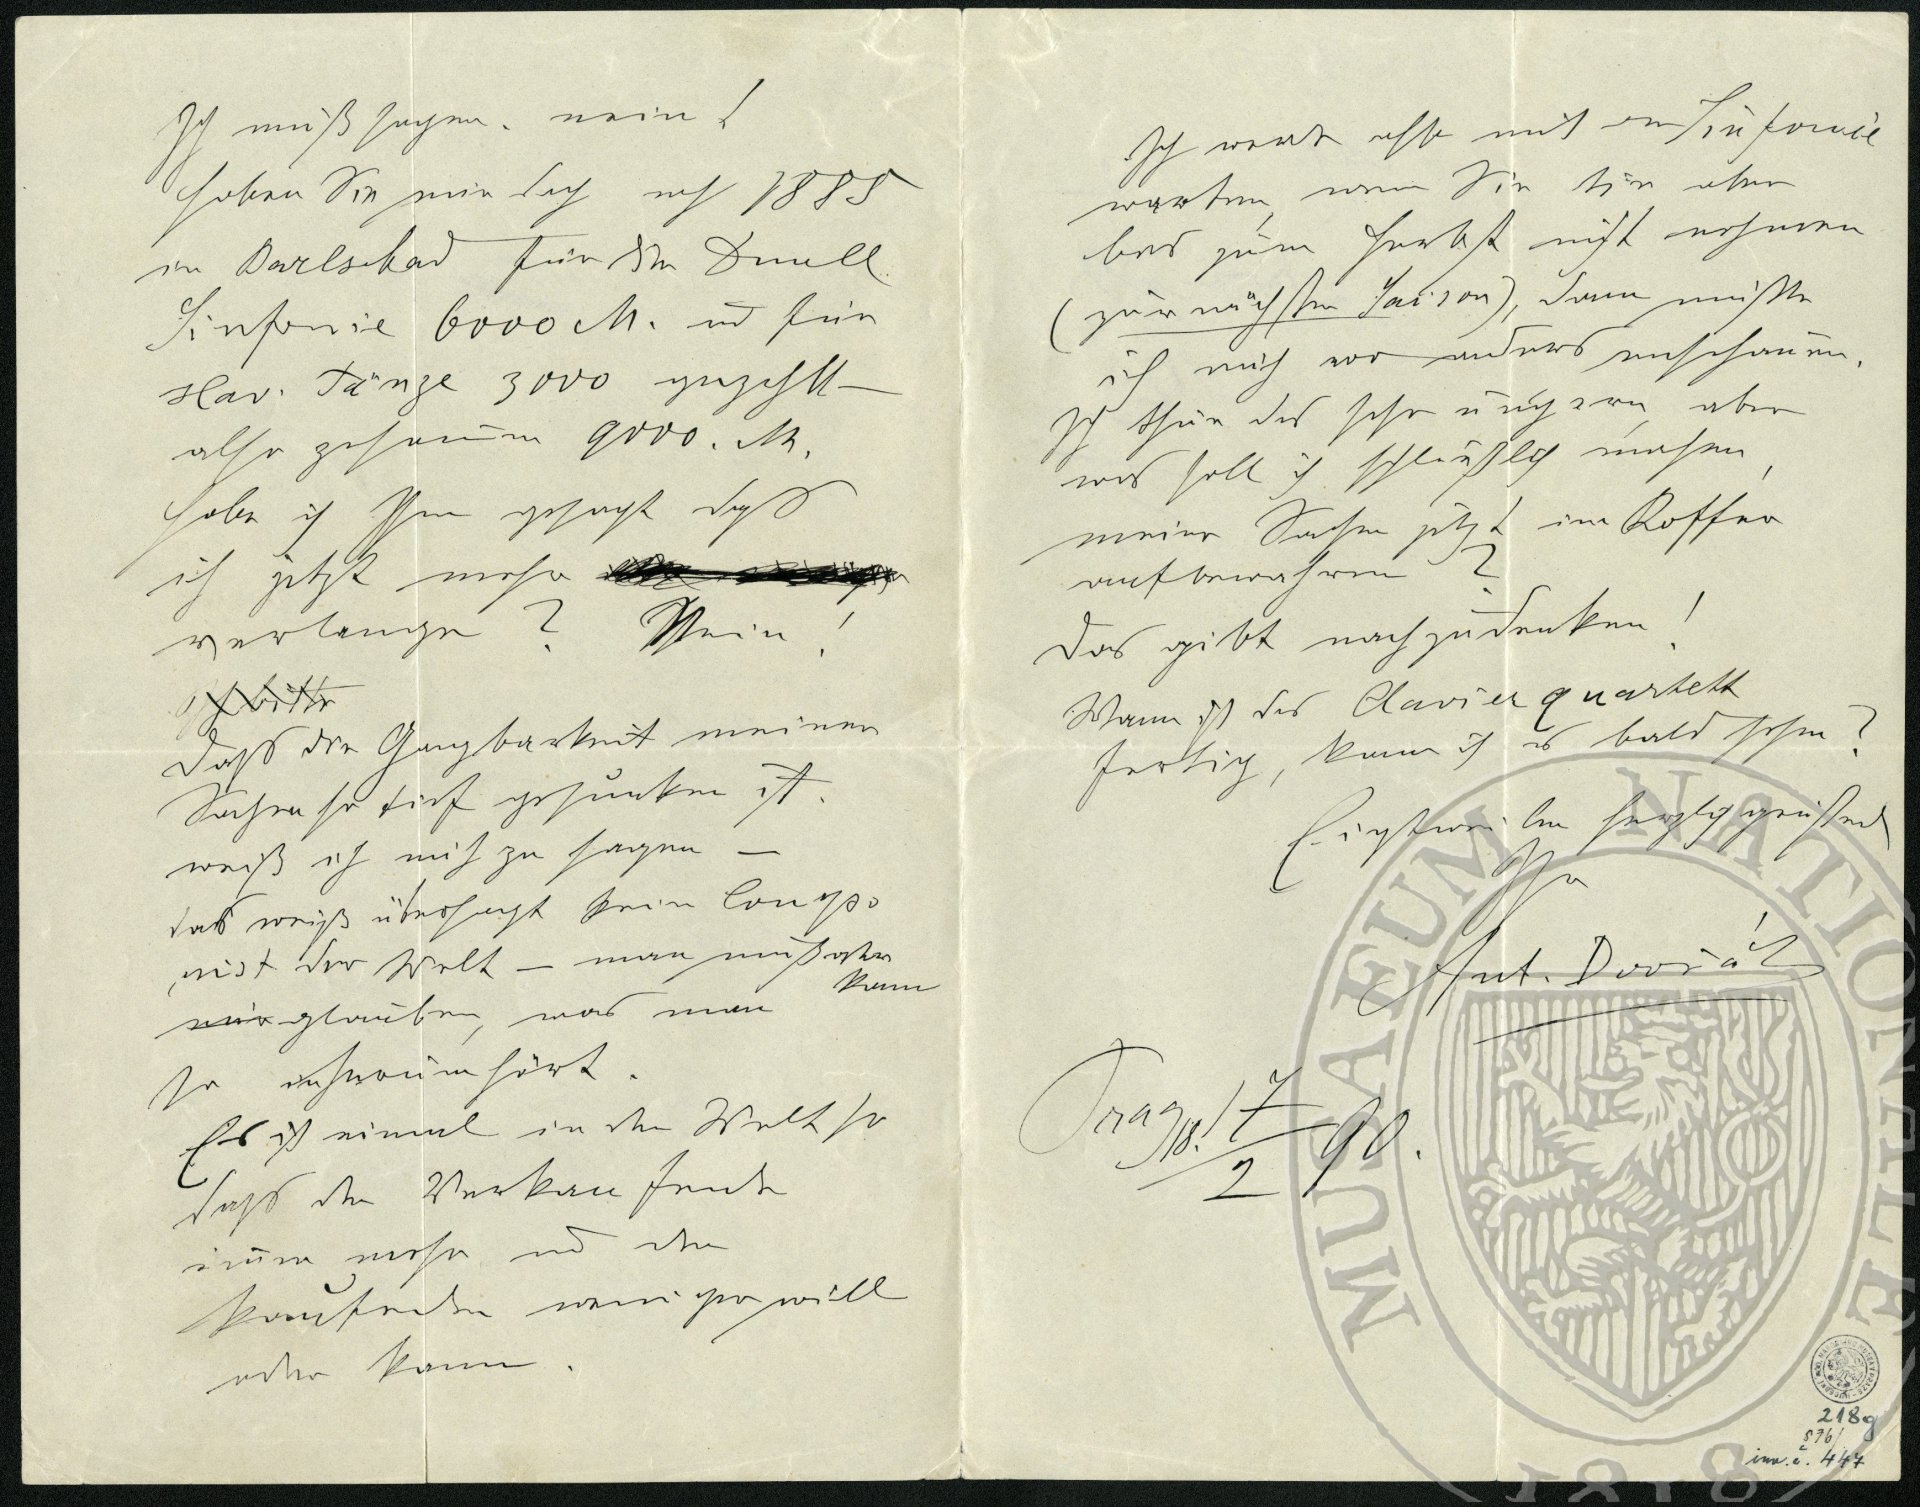 Ich muß sagen. nein!
haben Sie mir doch noch 1885
in Carlsbad für die Dmoll
Sinfonie 6000 M. und für
slav. Tänze 3000 gezahlt —
also zusamen 9000. M.
habe ich Ihnen gesagt daß
ich jetzt mehr
verlange? Nein!
Ich bitte
Daß die Gangbarkeit meiner
Sachen so tief gesunken ist.
weiß ich nicht zu sagen —
das weiß überhaupt kein Compo
nist der Welt — man muß aber
kann
nur glauben, was man
so erhört.
Es ist einmal in der Welt so
daß der Verkaufende
imer mehr und der
Kaufende weniger will
oder kann.
Ich werde also mit der Sinfonie
warten, wenn Sie sie aber
bis zum Herbst nicht nehmen
(zur nächsten Saison), dann müßte
ich mich wo anders umschauen.
Ich thue das sehr ungern, aber
was soll ich schließlich machen,
meine Sachen jetzt im Koffer
aufbewahren?
Das gibt nachzudenken!
Wann ist das Clavierquartett
fertig, kann ich es bald sehen?
Einstweilen herzlich grüßend
Ihr
Ant. Dvořák
Prag 17/2 18.90.
MUSAEUM NATIONALE
1818
218g
576/
inv. č. 447